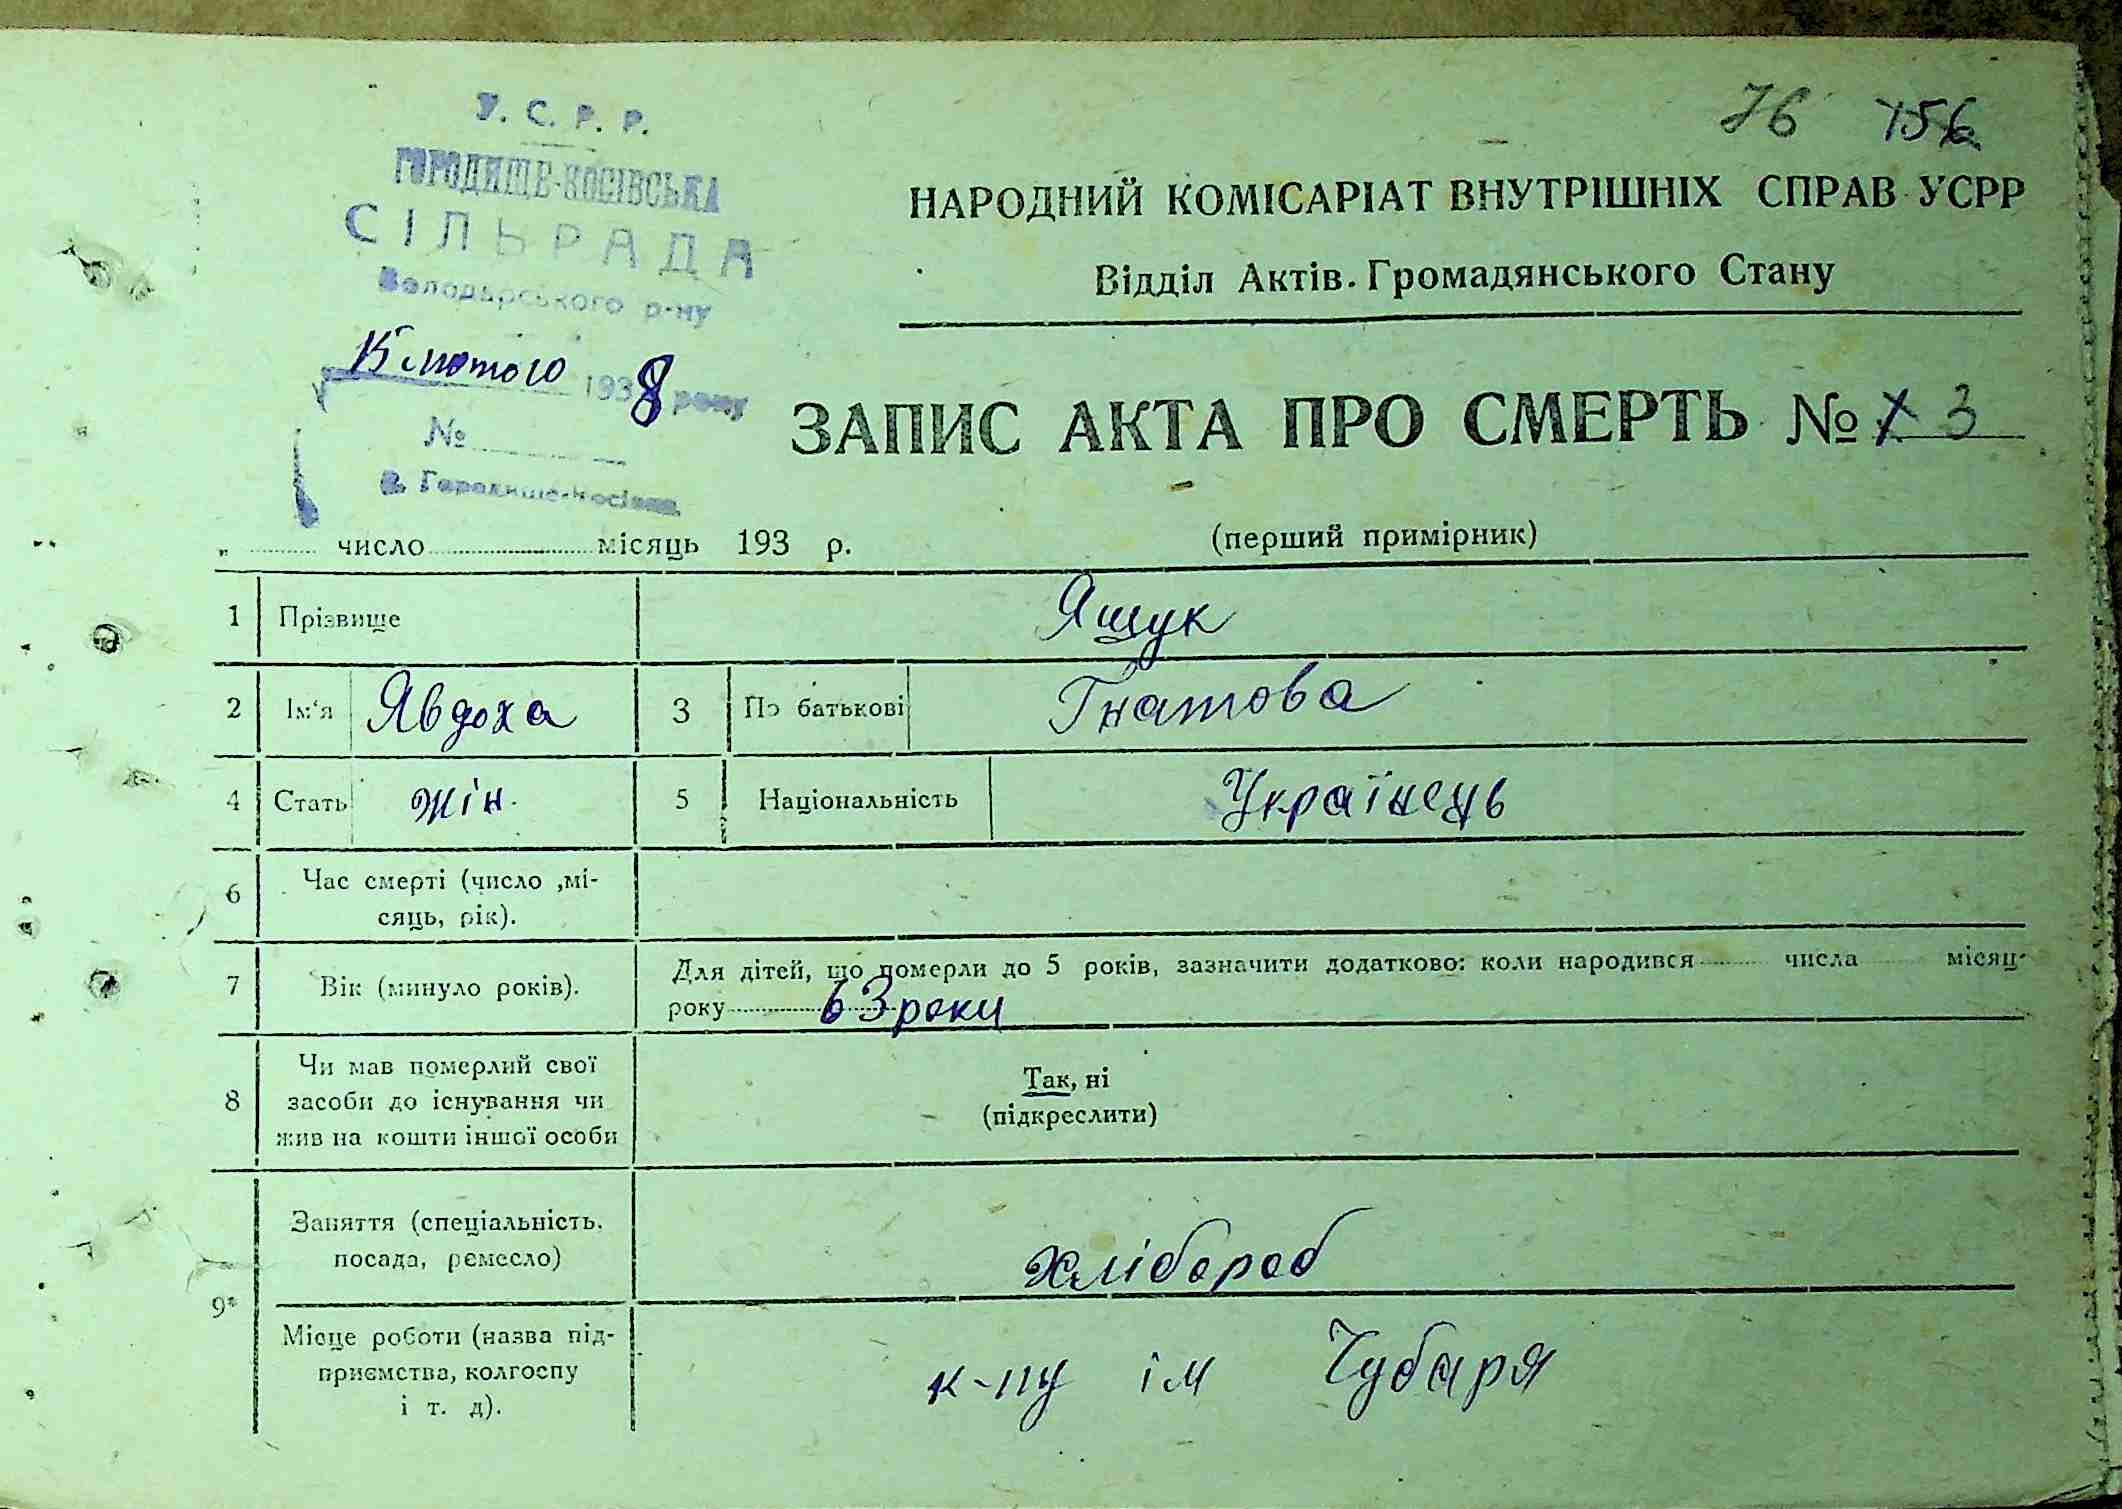 76 156
У. С. Р. Р.
ГОРОДИЩЕ-КОСІВСЬКА
СІЛЬРАДА
Володарського р-ну
15 лютого 1938 року
№
с. Городище-Косівка
НАРОДНИЙ КОМІСАРІАТ ВНУТРІШНІХ СПРАВ УСРР
Відділ Актів. Громадянського Стану
ЗАПИС АКТА ПРО СМЕРТЬ № 3
„ число місяць 193 р.
(перший примірник)
1 Прізвище Ящук
2 Ім‘я Явдоха 3 По батькові Гнатова
4 Стать жін. 5 Національність Українець
6 Час смерті (число ,мі-
сяць, рік).
7 Вік (минуло років). Для дітей, що померли до 5 років, зазначити додатково: коли народився числа місяц
року 63 роки
8 Чи мав померлий свої
засоби до існування чи
жив на кошти іншої особи
Так, ні
(підкреслити)
9* Заняття (спеціальність.
посада, ремесло)
хлібороб
Місце роботи (назва під-
приємства, колгоспу
і т. д).
к-пу ім Чубаря